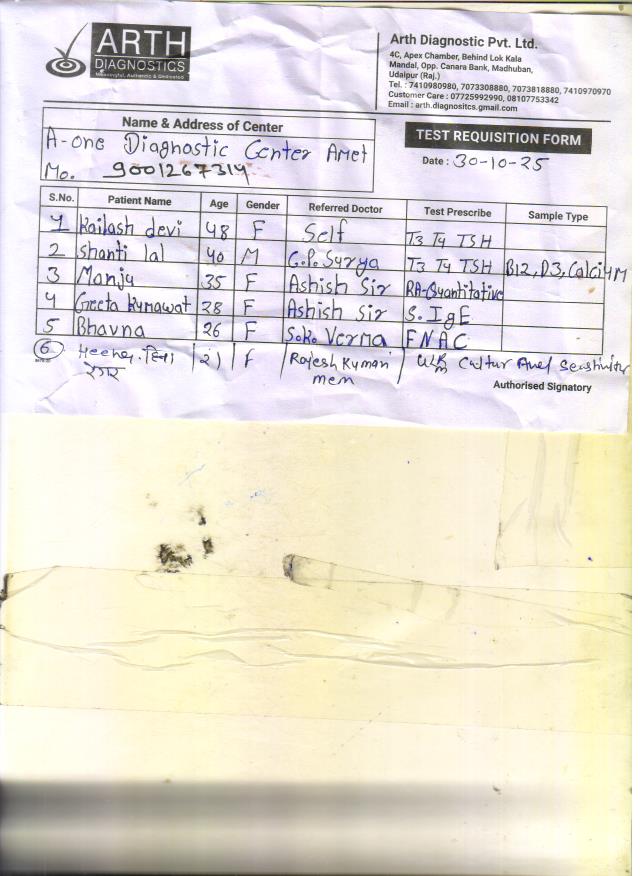 ARTH
DIAGNOSTICS
Meaningful, Authentic & Dedicated
Arth Diagnostic Pvt. Ltd.
4C, Apex Chamber, Behind Lok Kala
Mandal, Opp. Canara Bank, Madhuban,
Udaipur (Raj.)
Tel. : 7410980980, 7073308880, 7073818880, 7410970970
Customer Care : 07725992990, 08107753342
Email : arth.diagnositcs.gmail.com
Name & Address of Center
A-one Diagnostic Center Amet
Mo. 9001267314
TEST REQUISITION FORM
Date : 30-10-25
S.No. Patient Name Age Gender Referred Doctor Test Prescribe Sample Type
1 Kailash devi 48 F Self T3 T4 TSH
2 Shanti lal 40 M G.P. Surya T3 T4 TSH B12, D3, Calcium
3 Manju 35 F Ashish Sir RA-Quantitative
4 Geeta Kumawat 28 F Ashish Sir S. IgE
5 Bhavna 26 F S.K. Verma FNAC
6 21 F Rajesh Kumari Cultur And Sensitivity
रेगर mem
Authorised Signatory